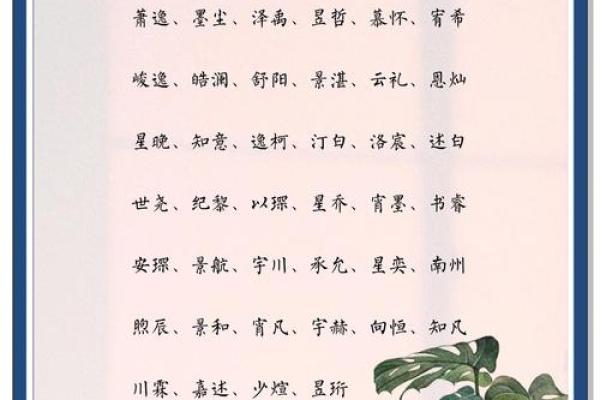 萧逸、墨尘、泽禹、昱哲、慕怀、宥希
峻逸、皓澜、舒阳、景湛、云礼、恩灿
星晚、知意、逸柯、汀白、洛宸、述白
世尧、纪黎、以琛、星乔、宵墨、书睿
安琛、景航、宇川、承允、星奕、南州
煦辰、景和、宵凡、宇赫、向恒、知凡
川霖、嘉述、少煊、昱珩